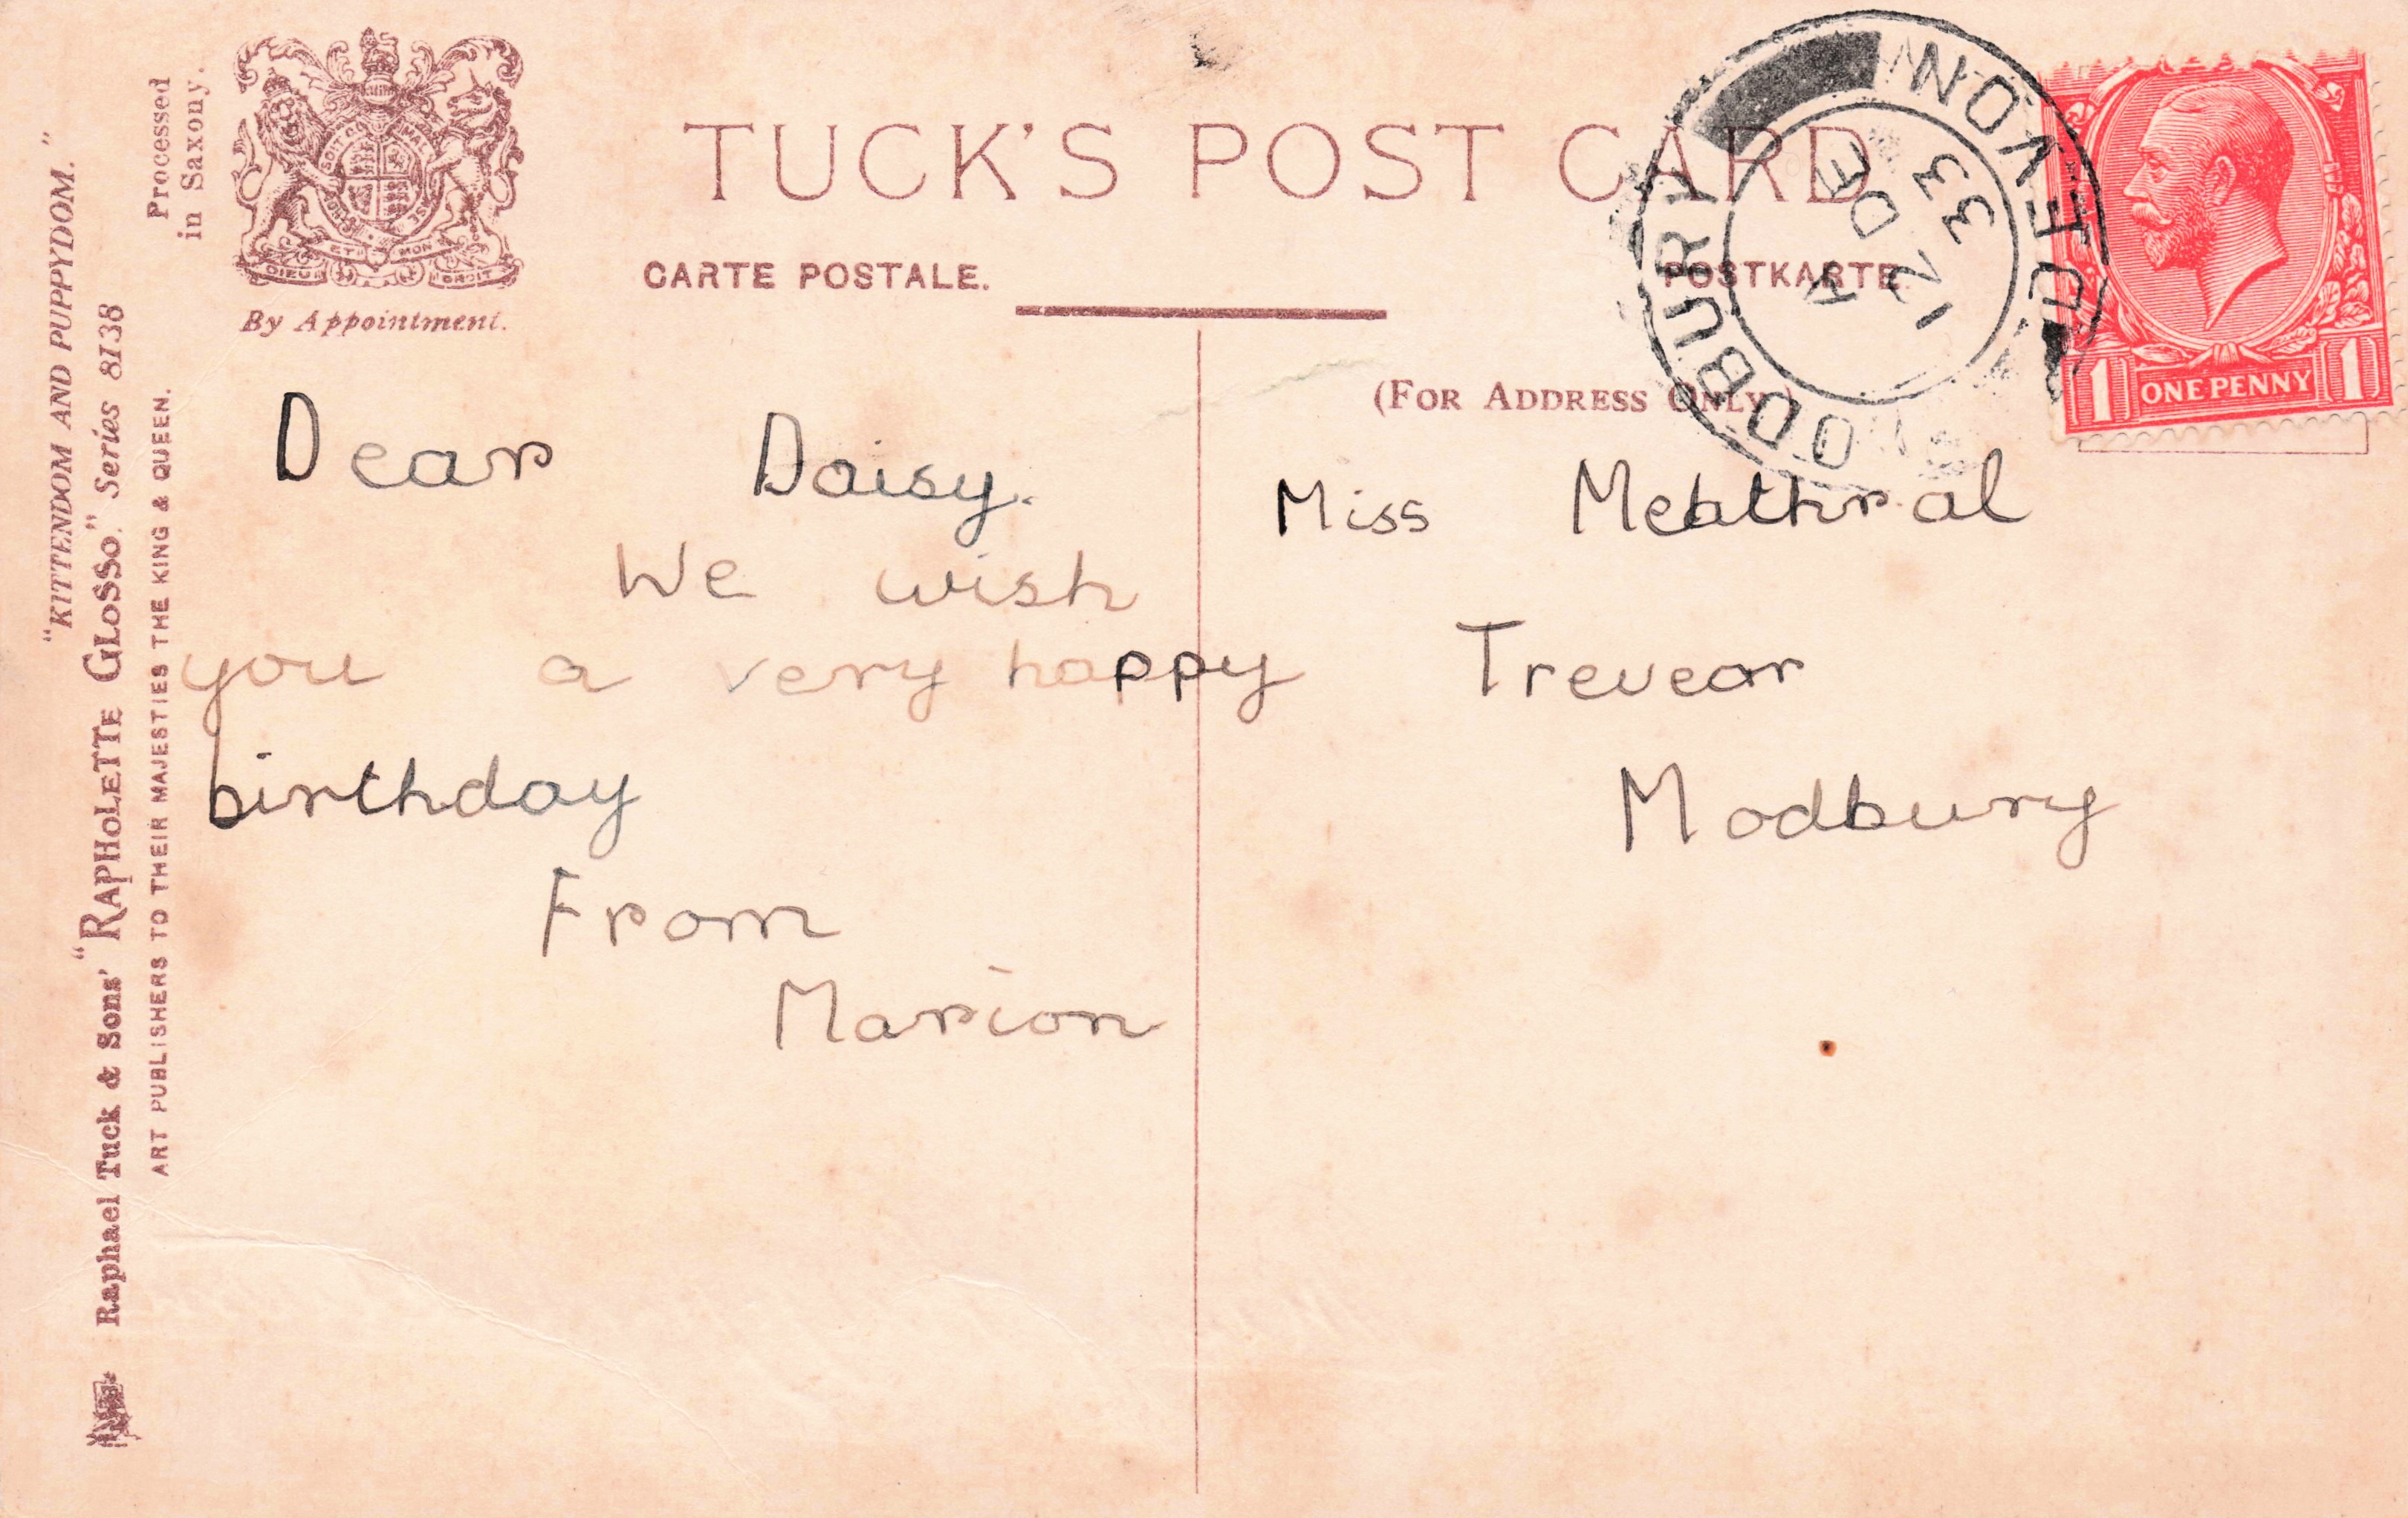 "KITTENDOM AND PUPPYDOM."
Raphael Tuck & Sons' "RAPHOLETTE GLOSSO." Series 8138
ART PUBLISHERS TO THEIR MAJESTIES THE KING & QUEEN.
Processed
in Saxony.
DIEU ET MON DROIT
By Appointment.
TUCK'S POST CARD
CARTE POSTALE.
POSTKARTE.
(FOR ADDRESS ONLY)
ODBURY DEVON
A
12 DE
33
ONE PENNY
1 1
Dear Daisy.
We wish
you a very happy
birthday
From
Marion
Miss
Trevear
Modbury